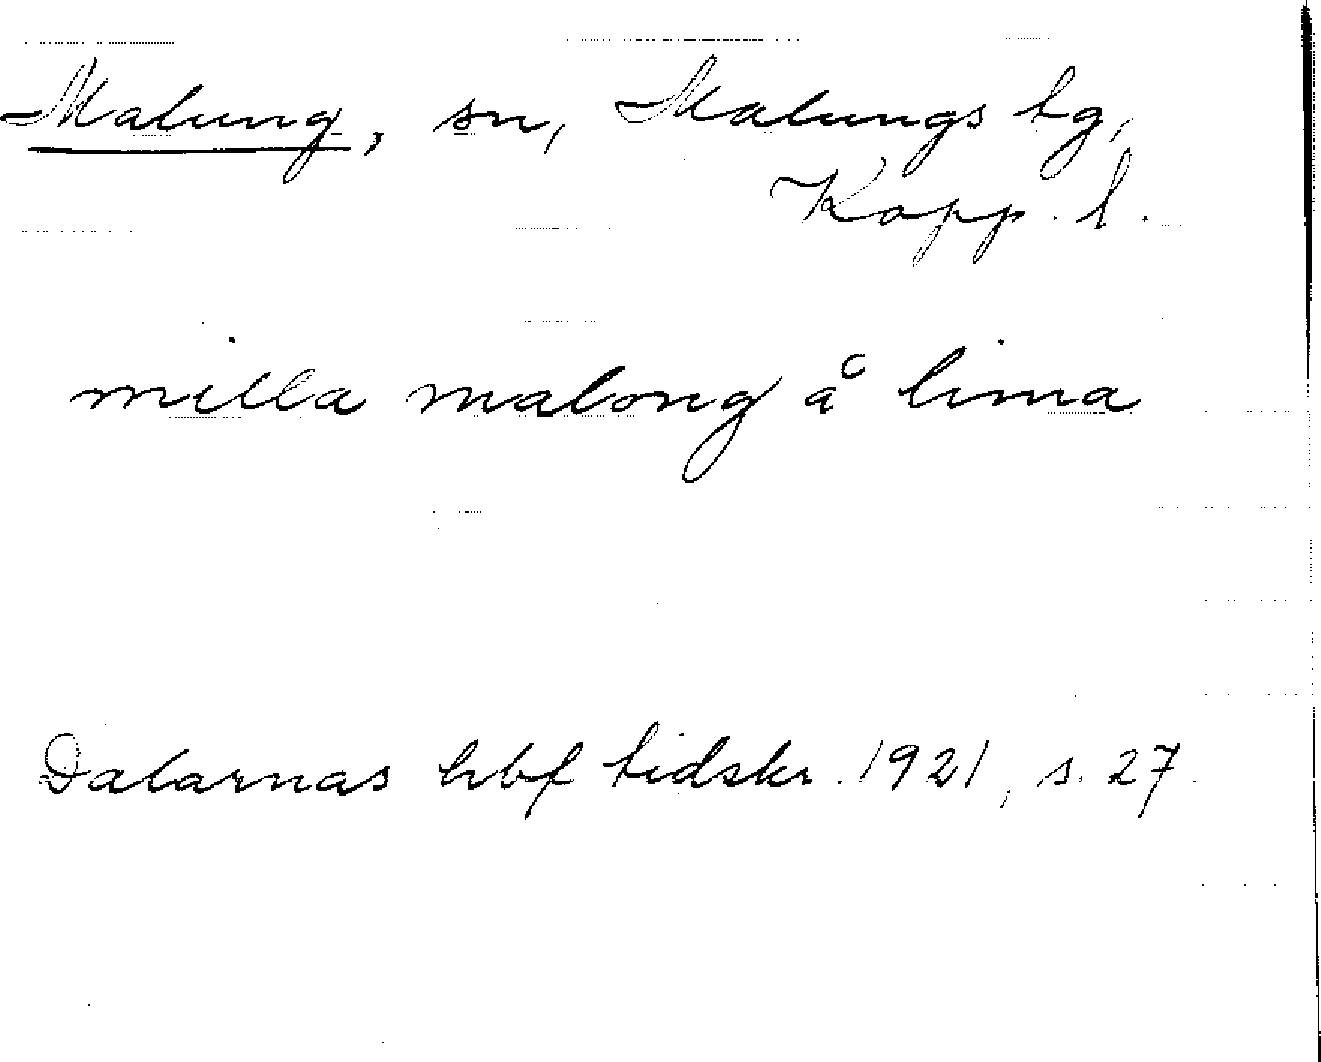 Malung, sn, Malungs tg,
Kopp. l.
milla malong å lima
Dalarnas hbf tidskr. 1921, s. 27.